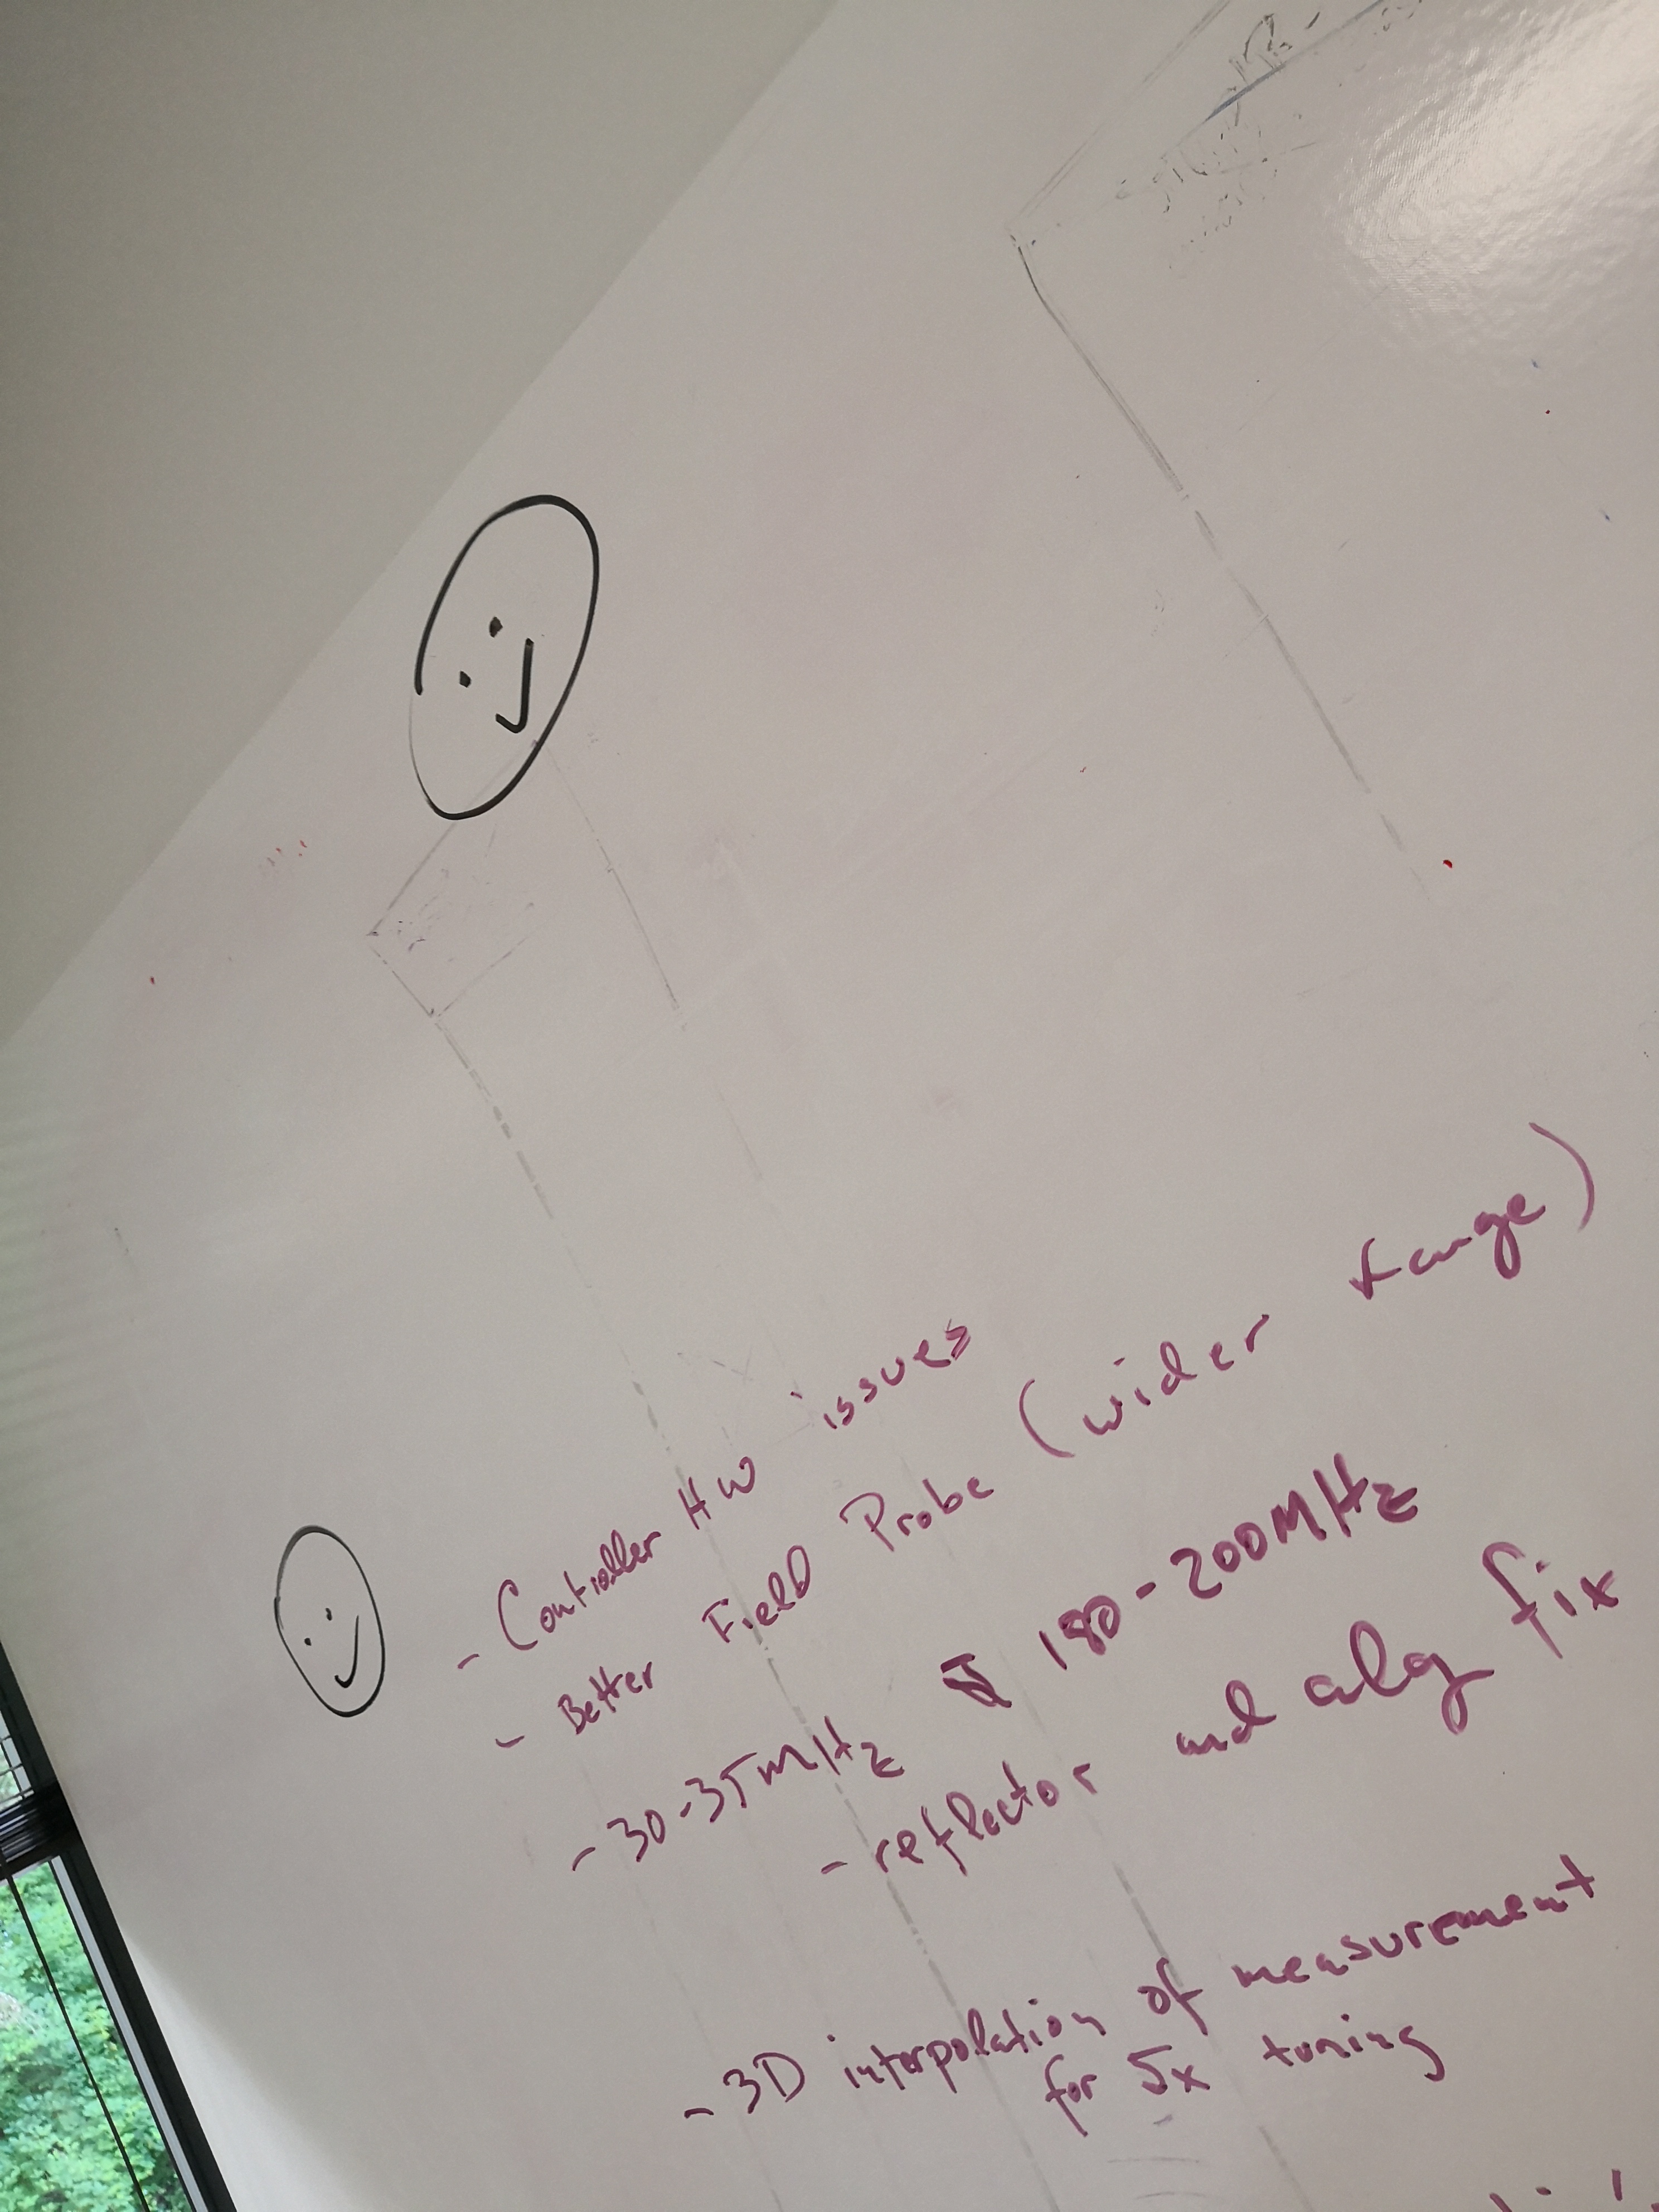 - Controller HW issues
- Better Field Probe (wider range)
- 30-35MHz 180-200MHz
- reflector and alg fix
- 3D interpolation of measurement
for 5x tuning